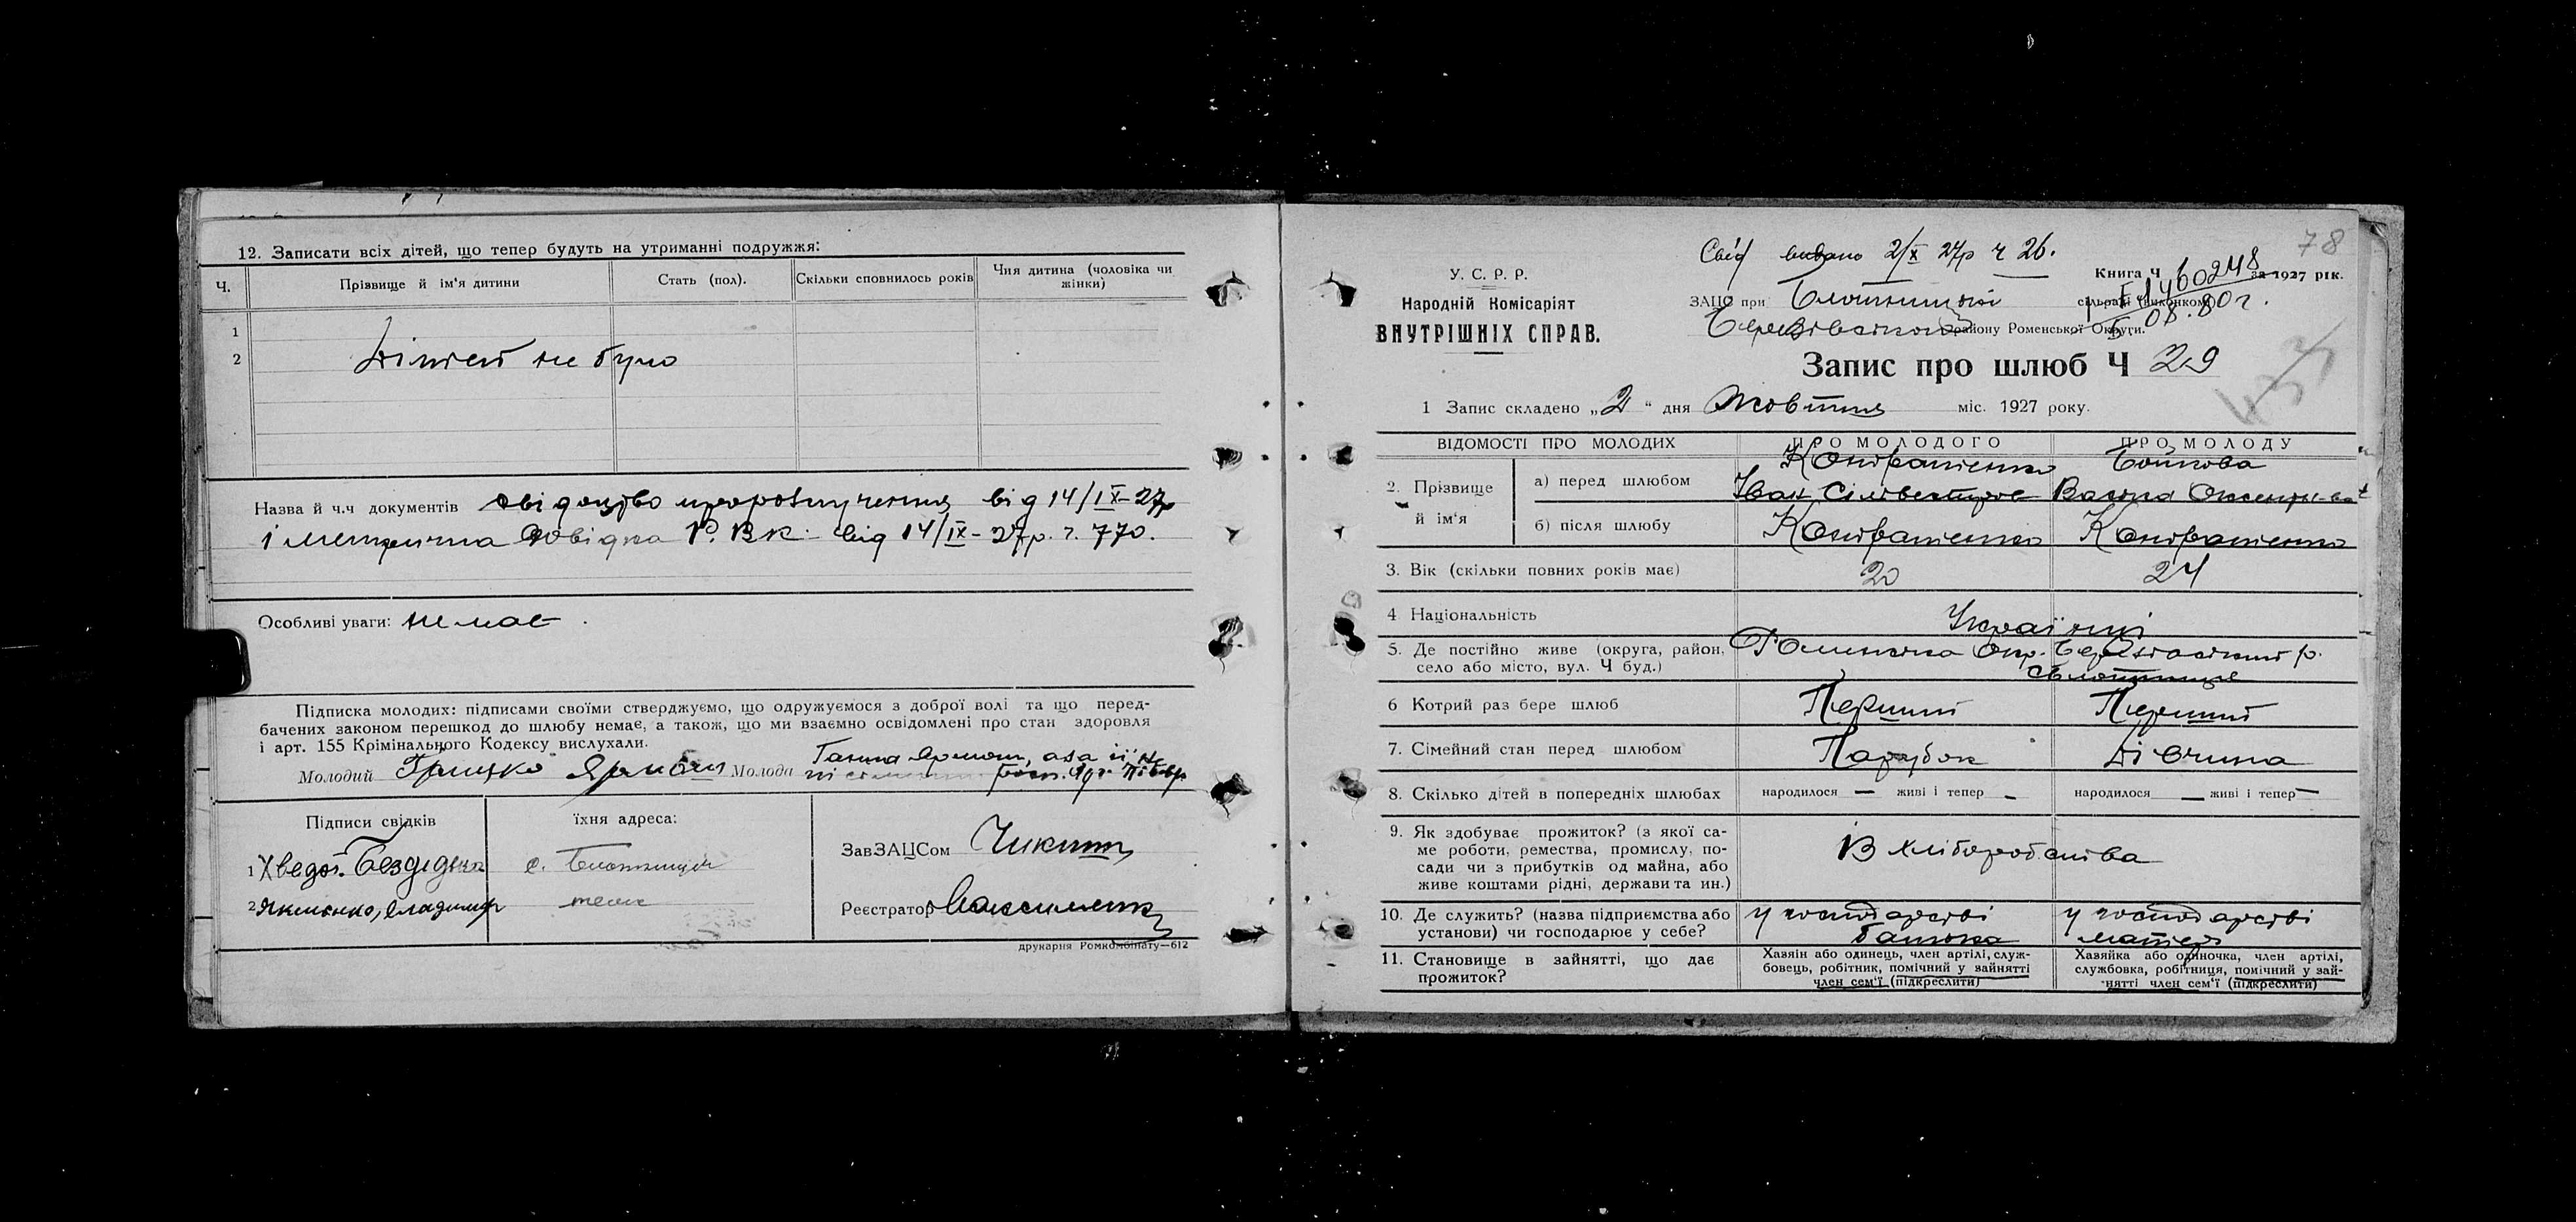 12. Записати всіх дітей, що тепер будуть на утриманні подружжя:
Ч. Прізвище й ім'я дитини Стать (пол). Скільки сповнилось років Чия дитина (чоловіка чи жінки)
1
2 Дітей не було
Назва й ч.ч документів від 14/IX-27р
і метрична довідка Р.В.К. від 14/IX-27р. ч. 770.
Особливі уваги: немає.
Підписка молодих: підписами своїми стверджуємо, що одружуємося з доброї волі та що перед-
бачених законом перешкод до шлюбу немає, а також, що ми взаємно освідомлені про стан здоровля
і арт. 155 Крімінального Кодексу вислухали.
Молодий Грицко Ярмош Молода Ганна Ярмош, а за її не
Підписи свідків їхня адреса:
1 Хведос. Бездідько с. Блотниця
2 Якменко, Владимир теж
ЗавЗАЦСом Чикит
Реєстратор
друкарня Ромкомбінату—612
78
Свід видано 2/X 27р ч 26.
У. С. Р. Р.
Народній Комісаріят
ВНУТРІШНІХ СПРАВ.
Книга Ч за 1927 рік.
ЗАЦС при Блотницькій сільраді (виконкомі)
району Роменської Округи.
60248
08.80 г.
Запис про шлюб Ч 29
1 Запис складено „2" дня Жовтня міс. 1927 року.
ВІДОМОСТІ ПРО МОЛОДИХ ПРО МОЛОДОГО ПРО МОЛОДУ
2. Прізвище й ім'я
а) перед шлюбом Кондратенко Іван Сілвестров Бойкова
б) після шлюбу Кондратенко Кондратенко
3. Вік (скільки повних років має) 20 24
4 Національність Українці
5. Де постійно живе (округа, район, село або місто, вул. Ч буд.) Роменська Окр. р.
с Блотниця
6 Котрий раз бере шлюб Перший Перший
7. Сімейний стан перед шлюбом Парубок Дівчина
8. Скілько дітей в попередніх шлюбах народилося — живі і тепер — народилося — живі і тепер —
9. Як здобуває прожиток? (з якої са-
ме роботи, ремества, промислу, по-
сади чи з прибутків од майна, або
живе коштами рідні, держави та ин.)
Із хліборобства
10. Де служить? (назва підприємства або
установи) чи господарює у себе?
у господарстві батька у господарстві матері
11. Становище в зайнятті, що дає
прожиток?
Хазяін або одинець, член артілі, служ-
бовець, робітник, помічний у зайнятті
член сем'ї (підкреслити)
Хазяйка або одиночка, член артілі,
службовка, робітниця, помічний у зай-
нятті член сем'ї (підкреслити)